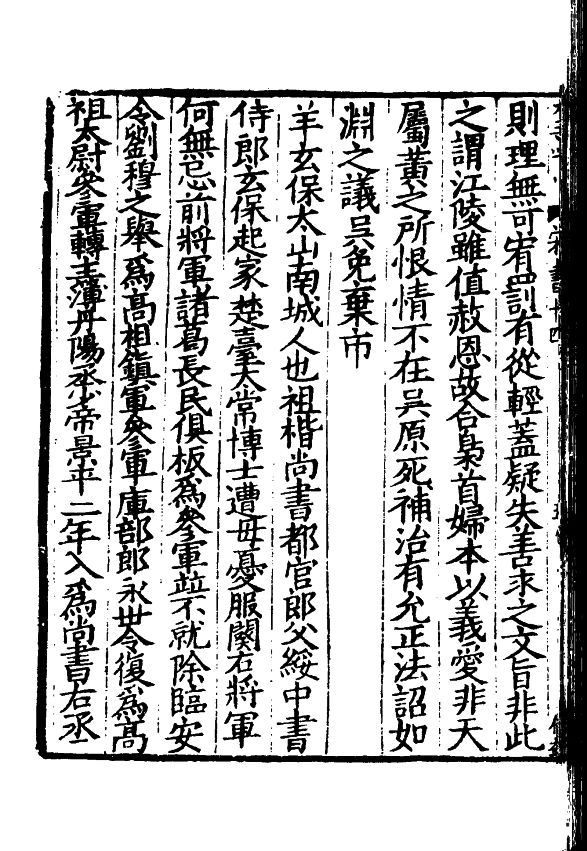 則理無可宥罰有從輕蓋疑失善求之文旨非此
之謂江陵雖值赦恩故合梟首婦本以義愛非天
屬黃之所恨情不在吳原死補治有允正法詔如
淵之議吳免棄市
羊玄保太山南城人也祖楷尚書都官郎父綏中書
侍郎玄保起家楚臺太常博士遭母憂服闋右將軍
何無忌前將軍諸葛長民俱板爲參軍並不就除臨安
令劉穆之舉爲高祖鎮軍參軍庫部郎永世令復爲高
祖太尉參軍轉主薄丹陽丞少帝景平二年入爲尚書右丞